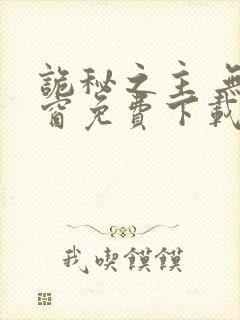 詭秘之主 無
窗免費下載
我喫饃饃